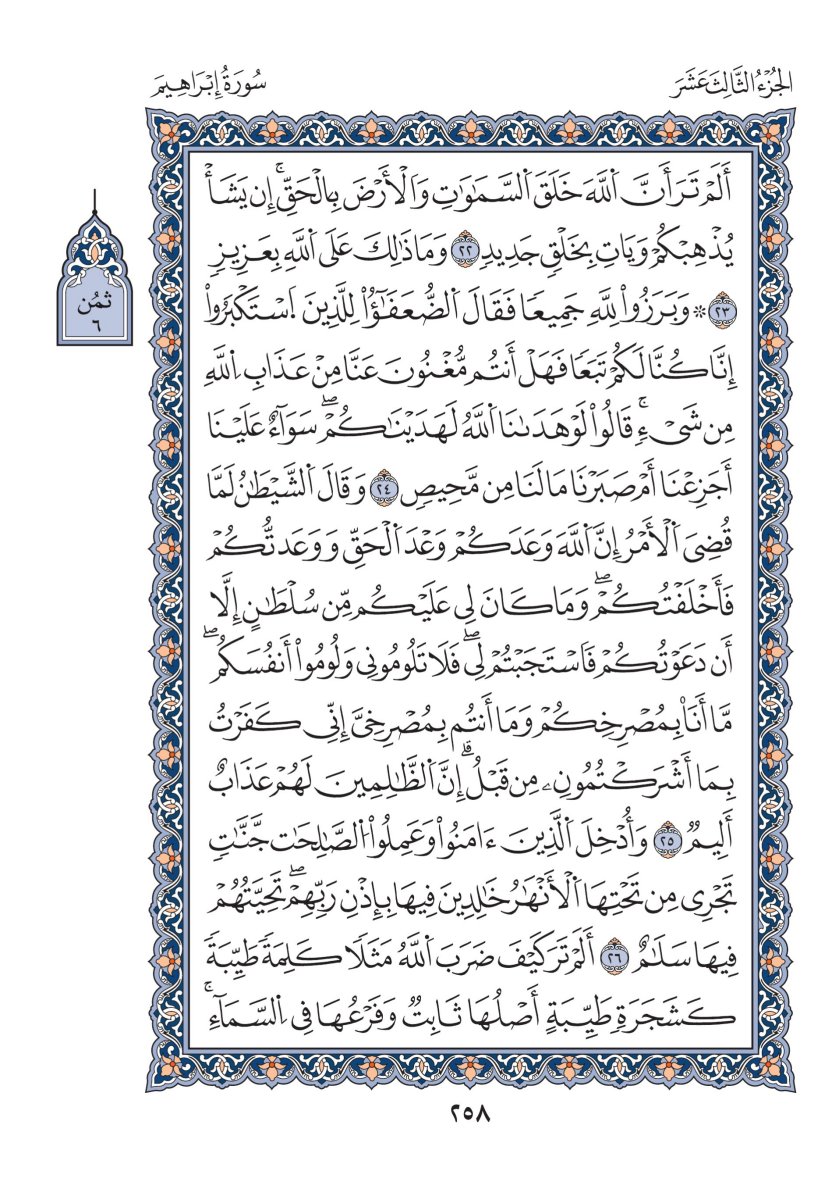 الجُزْءُ الثَّالِثَ عَشَرَ
سُورَةُ إِبْرَاهِيمَ
أَلَمْ تَرَ أَنَّ اَ۬للَّهَ خَلَقَ اَ۬لسَّمَٰوَٰتِ وَالْأَرْضَ بِالْحَقِّۚ إِن يَشَأْ
يُذْهِبْكُمْ وَيَاتِ بِخَلْقٖ جَدِيدٖ ٢٢ وَمَا ذَٰلِكَ عَلَى اَ۬للَّهِ بِعَزِيزٖ
٢٣ ۞ وَبَرَزُواْ لِلهِ جَمِيعٗا فَقَالَ اَ۬لضُّعَفَٰٓؤُاْ لِلَّذِينَ اَ۪سْتَكْبَرُواْ
ثُمُن
٦
إِنَّا كُنَّا لَكُمْ تَبَعٗا فَهَلْ أَنتُم مُّغْنُونَ عَنَّا مِنْ عَذَابِ اِ۬للَّهِ
مِن شَيْءٖۚ قَالُواْ لَوْ هَدَىٰنَا اَ۬للَّهُ لَهَدَيْنَٰكُمْۖ سَوَآءٌ عَلَيْنَا
أَجَزِعْنَا أَمْ صَبَرْنَا مَا لَنَا مِن مَّحِيصٖ ٢٤ وَقَالَ اَ۬لشَّيْطَٰنُ لَمَّا
قُضِيَ اَ۬لْأَمْرُ إِنَّ اَ۬للَّهَ وَعَدَكُمْ وَعْدَ اَ۬لْحَقِّ وَوَعَدتُّكُمْ
فَأَخْلَفْتُكُمْۖ وَمَا كَانَ لِي عَلَيْكُم مِّن سُلْطَٰنٍ إِلَّا
أَن دَعَوْتُكُمْ فَاسْتَجَبْتُمْ لِيۖ فَلَا تَلُومُونِي وَلُومُواْ أَنفُسَكُمۖ
مَّا أَنَا۠ بِمُصْرِخِكُمْ وَمَا أَنتُم بِمُصْرِخِيَّ إِنِّي كَفَرْتُ
بِمَا أَشْرَكْتُمُونِۦ مِن قَبْلُۗ إِنَّ اَ۬لظَّٰلِمِينَ لَهُمْ عَذَابٌ
أَلِيمٞ ٢٥ وَأُدْخِلَ اَ۬لَّذِينَ ءَامَنُواْ وَعَمِلُواْ اُ۬لصَّٰلِحَٰت جَّنَّٰتٖ
تَجْرِي مِن تَحْتِهَا اَ۬لْأَنْهَٰرُ خَٰلِدِينَ فِيهَا بِإِذْنِ رَبِّهِمْۖ تَحِيَّتُهُمْ
فِيهَا سَلَٰمٌ ٢٦ أَلَمْ تَرَ كَيْفَ ضَرَبَ اَ۬للَّهُ مَثَلٗا كَلِمَةٗ طَيِّبَةٗ
كَشَجَرَةٖ طَيِّبَةٍ أَصْلُهَا ثَابِتٞ وَفَرْعُهَا فِي اِ۬لسَّمَآءِۚ
٢٥٨